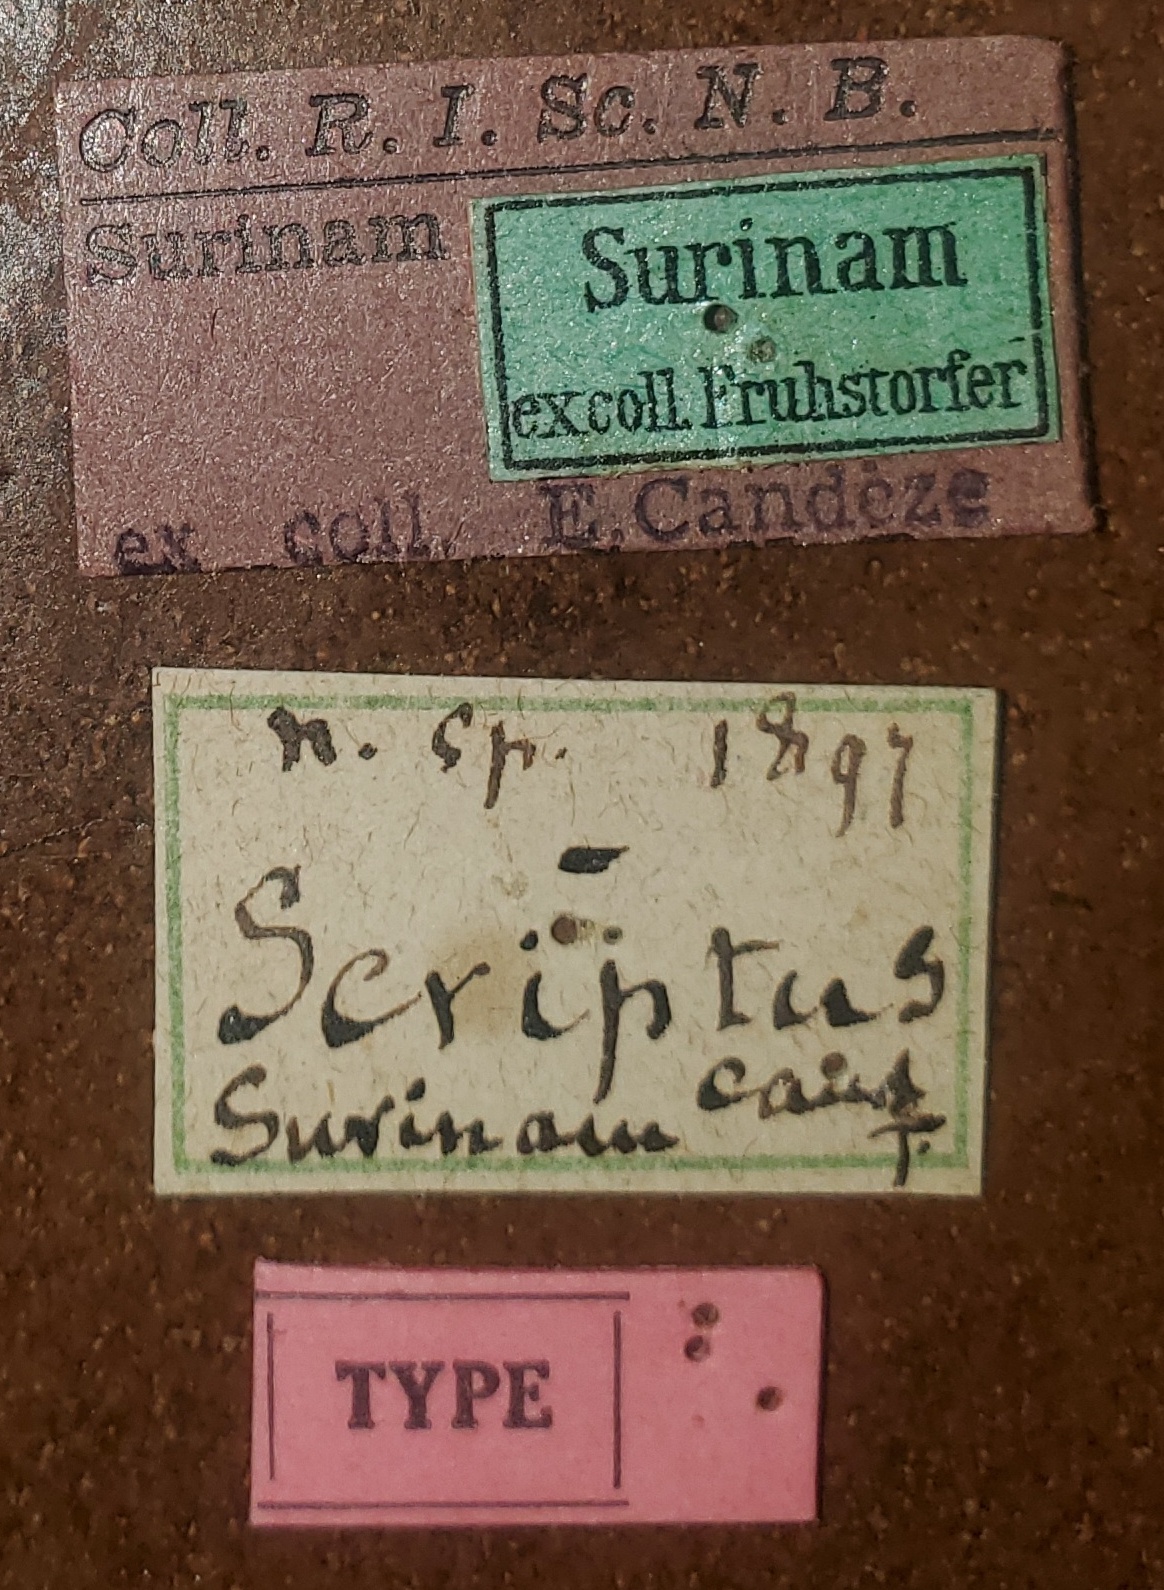 Coll. R. I. Sc. N. B.
Surinam
Surinam
ex coll. Fruhstorfer
ex coll. E. Candèze
n. sp. 1897
Scriptus
Surinam
TYPE